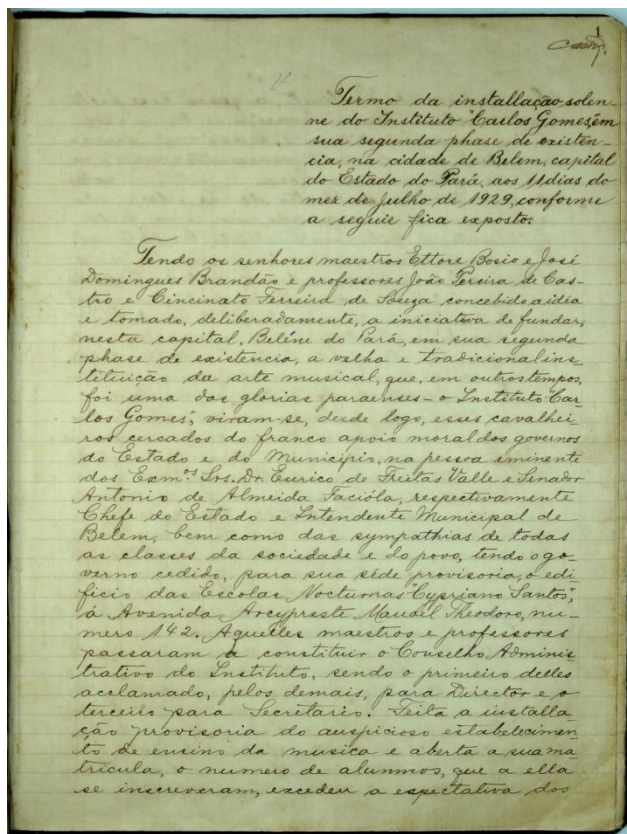 1
Termo da installação solen-
ne do Instituto "Carlos Gomes", em
sua segunda phase de existen-
cia, na cidade de Belem, capital
do Estado do Pará, aos 11 dias do
mez de Julho de 1929, conforme
a seguir fica exposto.
Tendo os senhores maestros Ettore Bosio e José
Domingues Brandão e professores João Pereira de Cas-
tro e Cincinato Ferreira de Souza concebido a idia
e tomado, deliberadamente, a iniciativa de fundar,
nesta capital, Beléne do Pará, em sua segunda
phase de existencia, a velha e tradicional ins-
tituição da arte musical, que, em outros tempos,
foi uma das glorias paraenses - o Instituto "Car-
los Gomes", viram-se, desde logo, esses cavalhei-
ros cercados do franco apoio moral dos governos
do Estado e do Municipio, na pessoa eminente
dos Exm.os Srs. Dr. Eurico de Freitas Valle e Senador
Antonio de Almeida Facióla, respectivamente
Chefe do Estado e Intendente Municipal de
Belem, bem como das sympathias de todas
as classes da sociedade e do povo, tendo o go-
verno cedido, para sua séde provisoria, o edi-
ficio das Escolas Nocturnas "Cypriano Santos",
á Avenida Arcypreste Manoel Theodoro, nu-
mero 142. Aquelles maestros e professores
passaram a constituir o Conselho Adminis-
trativo do Instituto, sendo o primeiro delles
acclamado, pelos demais, para Director e o
terceiro para Secretario. Feita a installa-
ção provisoria do auspicioso estabelecimen-
to de ensino da musica e aberta a sua ma-
tricula, o numero de alumnos, que a ella
se inscreveram, excedeu a espectativa dos